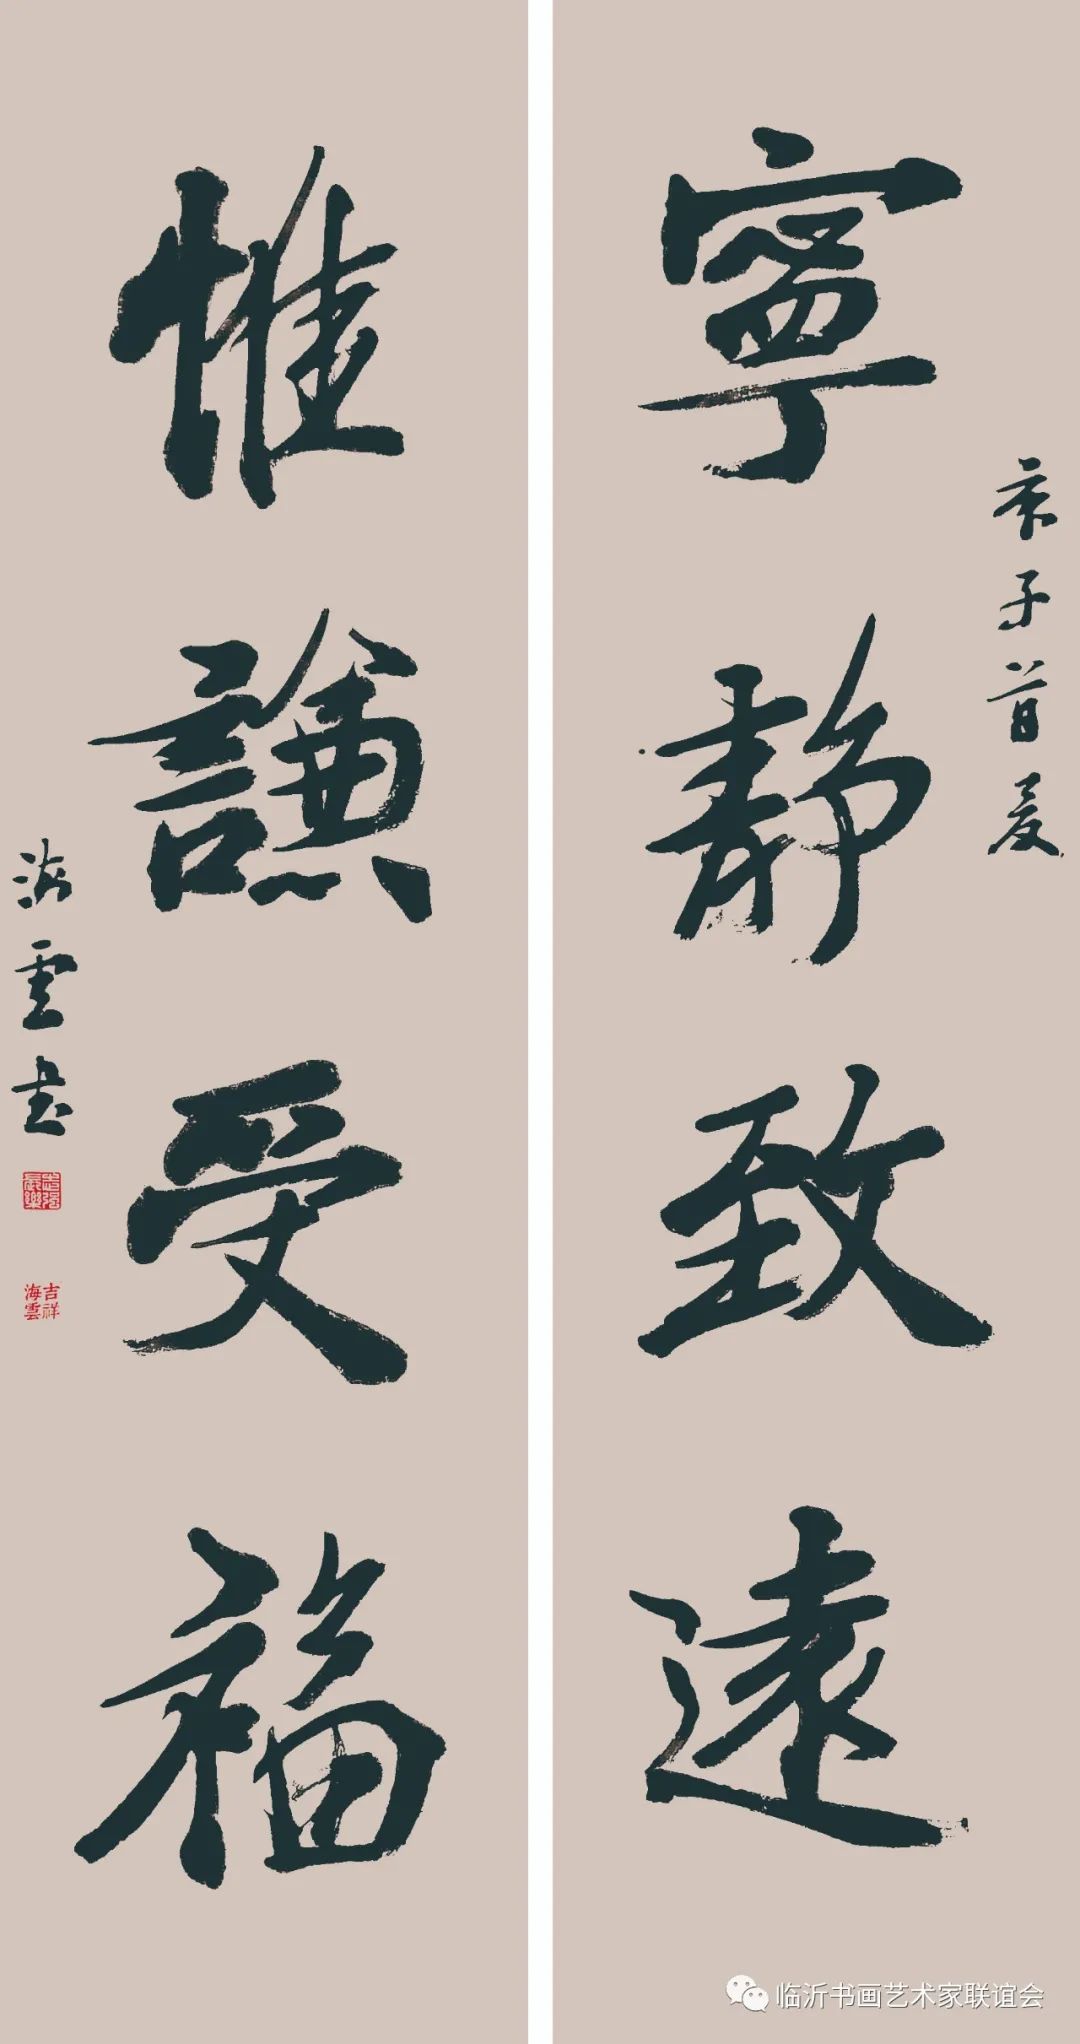 寧静致遠
庚子首夏
惟謙受福
海雲书
吉祥
海雲
临沂书画艺术家联谊会